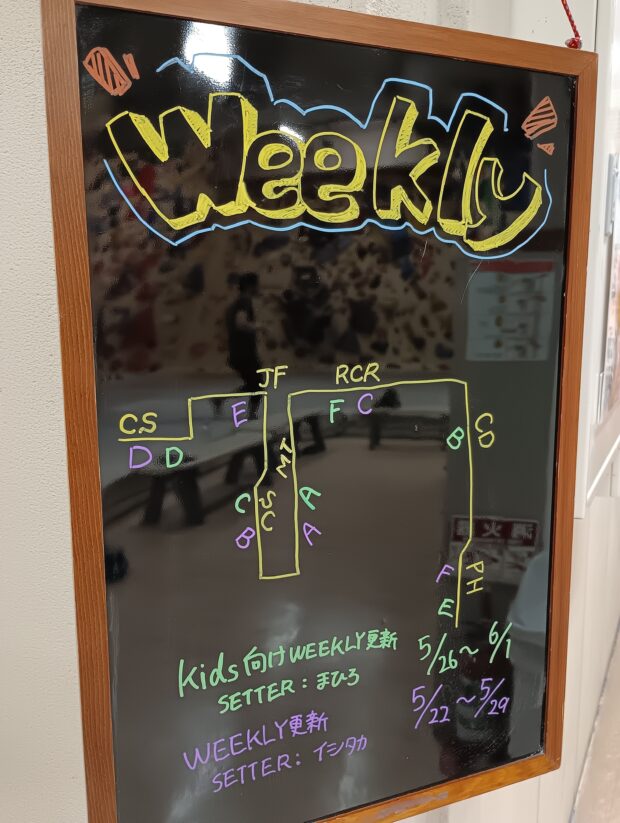 Weekly
JF RCR
C.S E F C
D D B CD
IMW
C SC A
B A
F PH
E
Kids向けWEEKLY更新 5/26〜6/1
SETTER：まひろ
WEEKLY更新 5/22〜5/29
SETTER：イシタカ